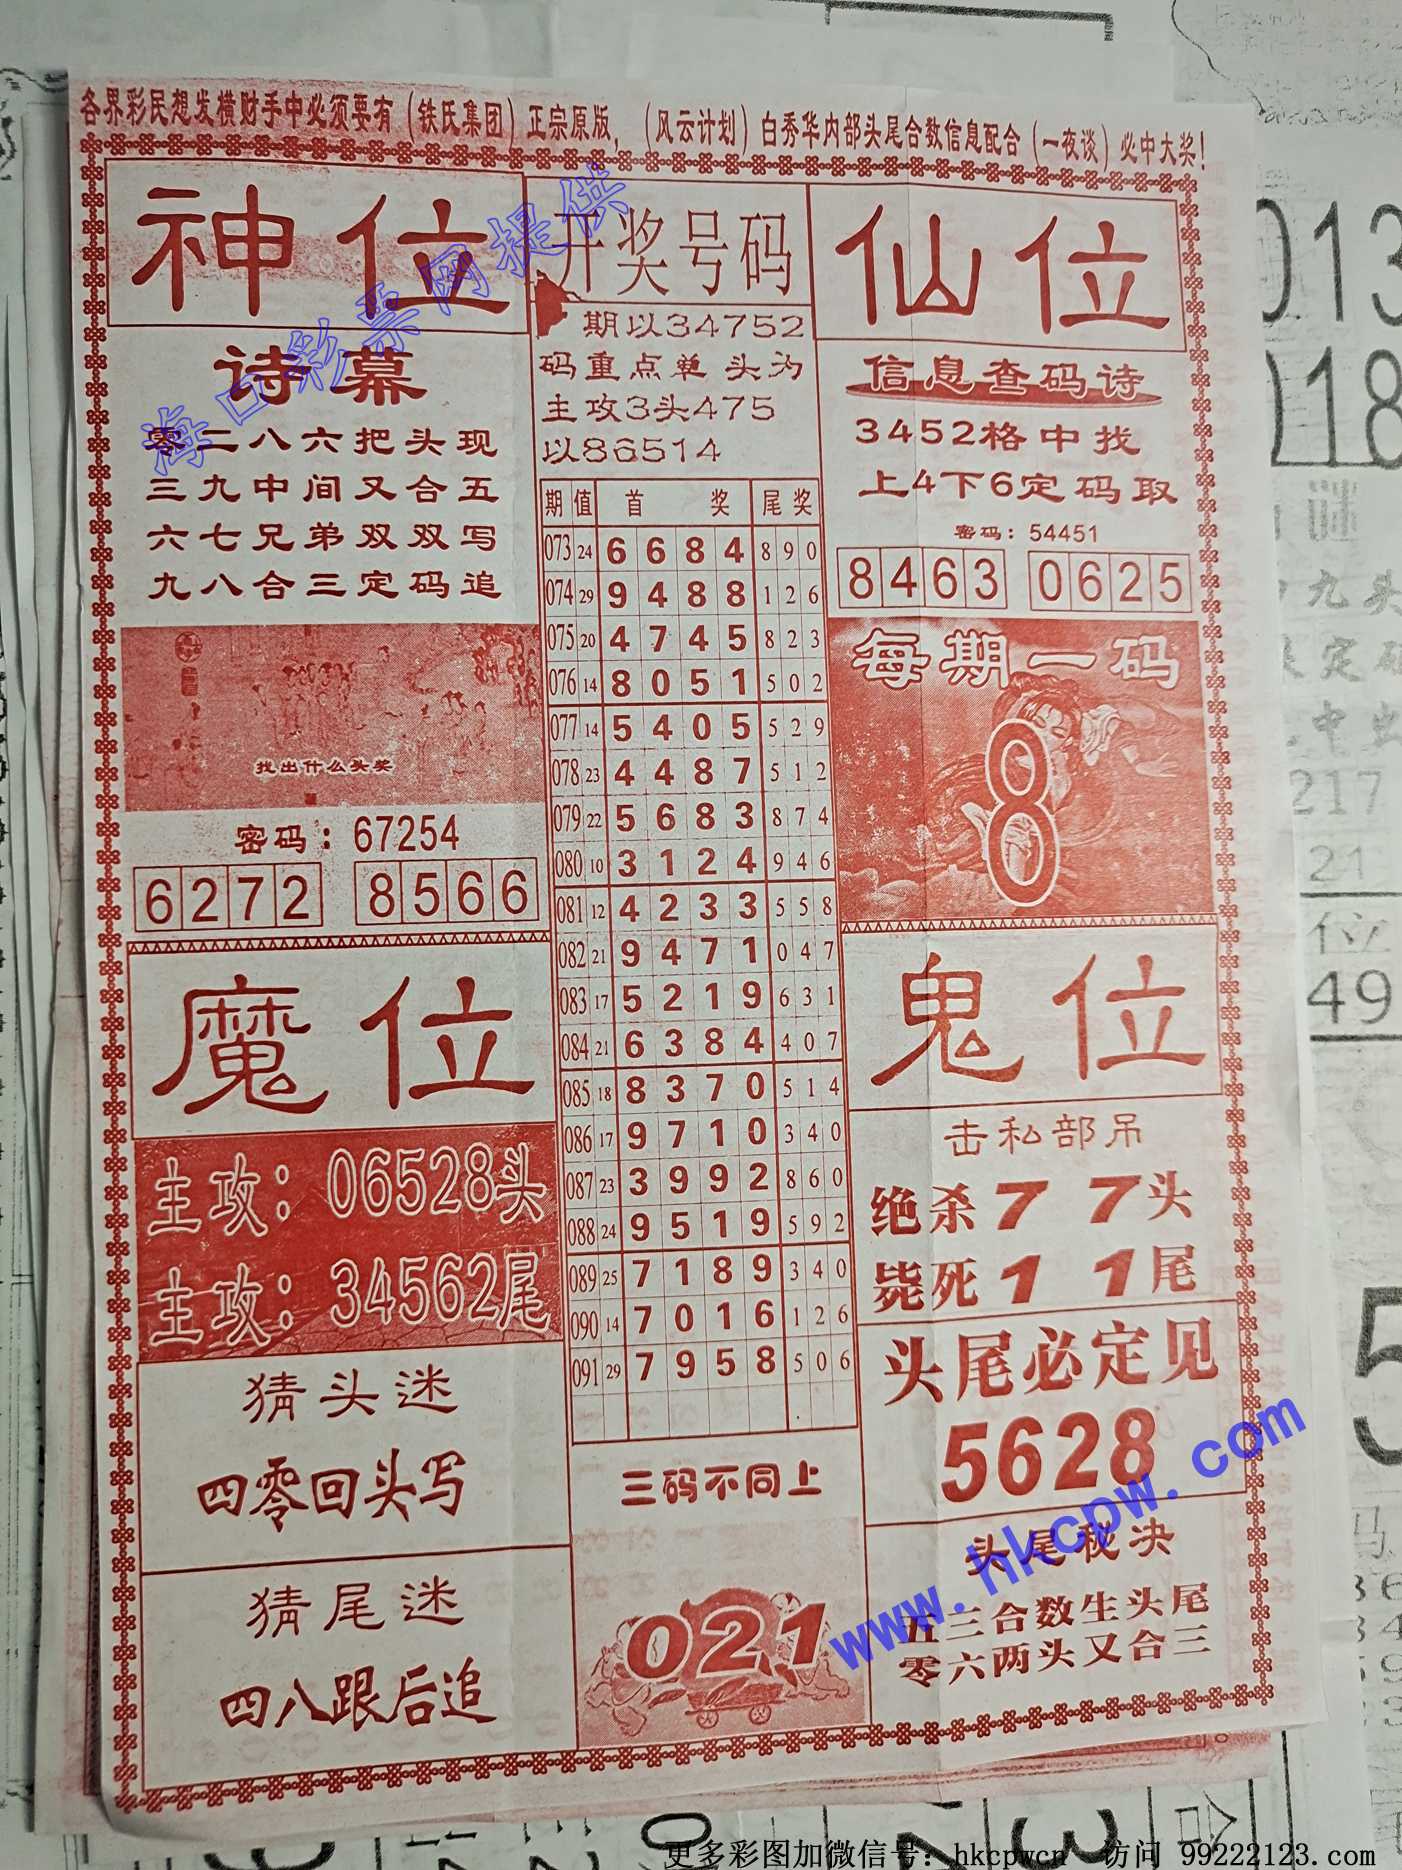 各界彩民想发横财手中必须要有（铁氏集团）正宗原版，（风云计划）白秀华内部头尾合数信息配合（一夜谈）必中大奖！
神位
诗幕
零二八六把头现
三九中间又合五
六七兄弟双双写
九八合三定码追
找出什么头奖
密码：67254
6272 8566
魔位
主攻：06528头
主攻：34562尾
猜头迷
四零回头写
猜尾迷
四八跟后追
开奖号码
期以34752
码重点单 头为
主攻3头475
以86514
期 值 首 奖 尾 奖
073 24 6 6 8 4 8 9 0
074 29 9 4 8 8 1 2 6
075 20 4 7 4 5 8 2 3
076 14 8 0 5 1 5 0 2
077 14 5 4 0 5 5 2 9
078 23 4 4 8 7 5 1 2
079 22 5 6 8 3 8 7 4
080 10 3 1 2 4 9 4 6
081 12 4 2 3 3 5 5 8
082 21 9 4 7 1 0 4 7
083 17 5 2 1 9 6 3 1
084 21 6 3 8 4 4 0 7
085 18 8 3 7 0 5 1 4
086 17 9 7 1 0 3 4 0
087 23 3 9 9 2 8 6 0
088 24 9 5 1 9 5 9 2
089 25 7 1 8 9 3 4 0
090 14 7 0 1 6 1 2 6
091 29 7 9 5 8 5 0 6
三码不同上
021
仙位
信息查码诗
3452格中找
上4下6定码取
密码：54451
8463 0625
每期一码
8
鬼位
击私部吊
绝杀7 7头
毙死1 1尾
头尾必定见
5628
头尾秘决
五三合数生头尾
零六两头又合三
海口彩票网提供
www.hkcpw.com
013
018
谜
九头
定码
217
21
位
49
5
更多彩图加微信号：hkcpwcn 访问 99222123.com